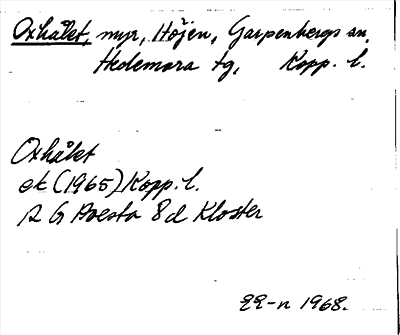 Oxhålet, myr, Höjen, Garpenbergs sn,
Hedemora tg, Kopp. l.
Oxhålet
ek (1965) Kopp. l.
R G Avesta 8d Kloster
1968.